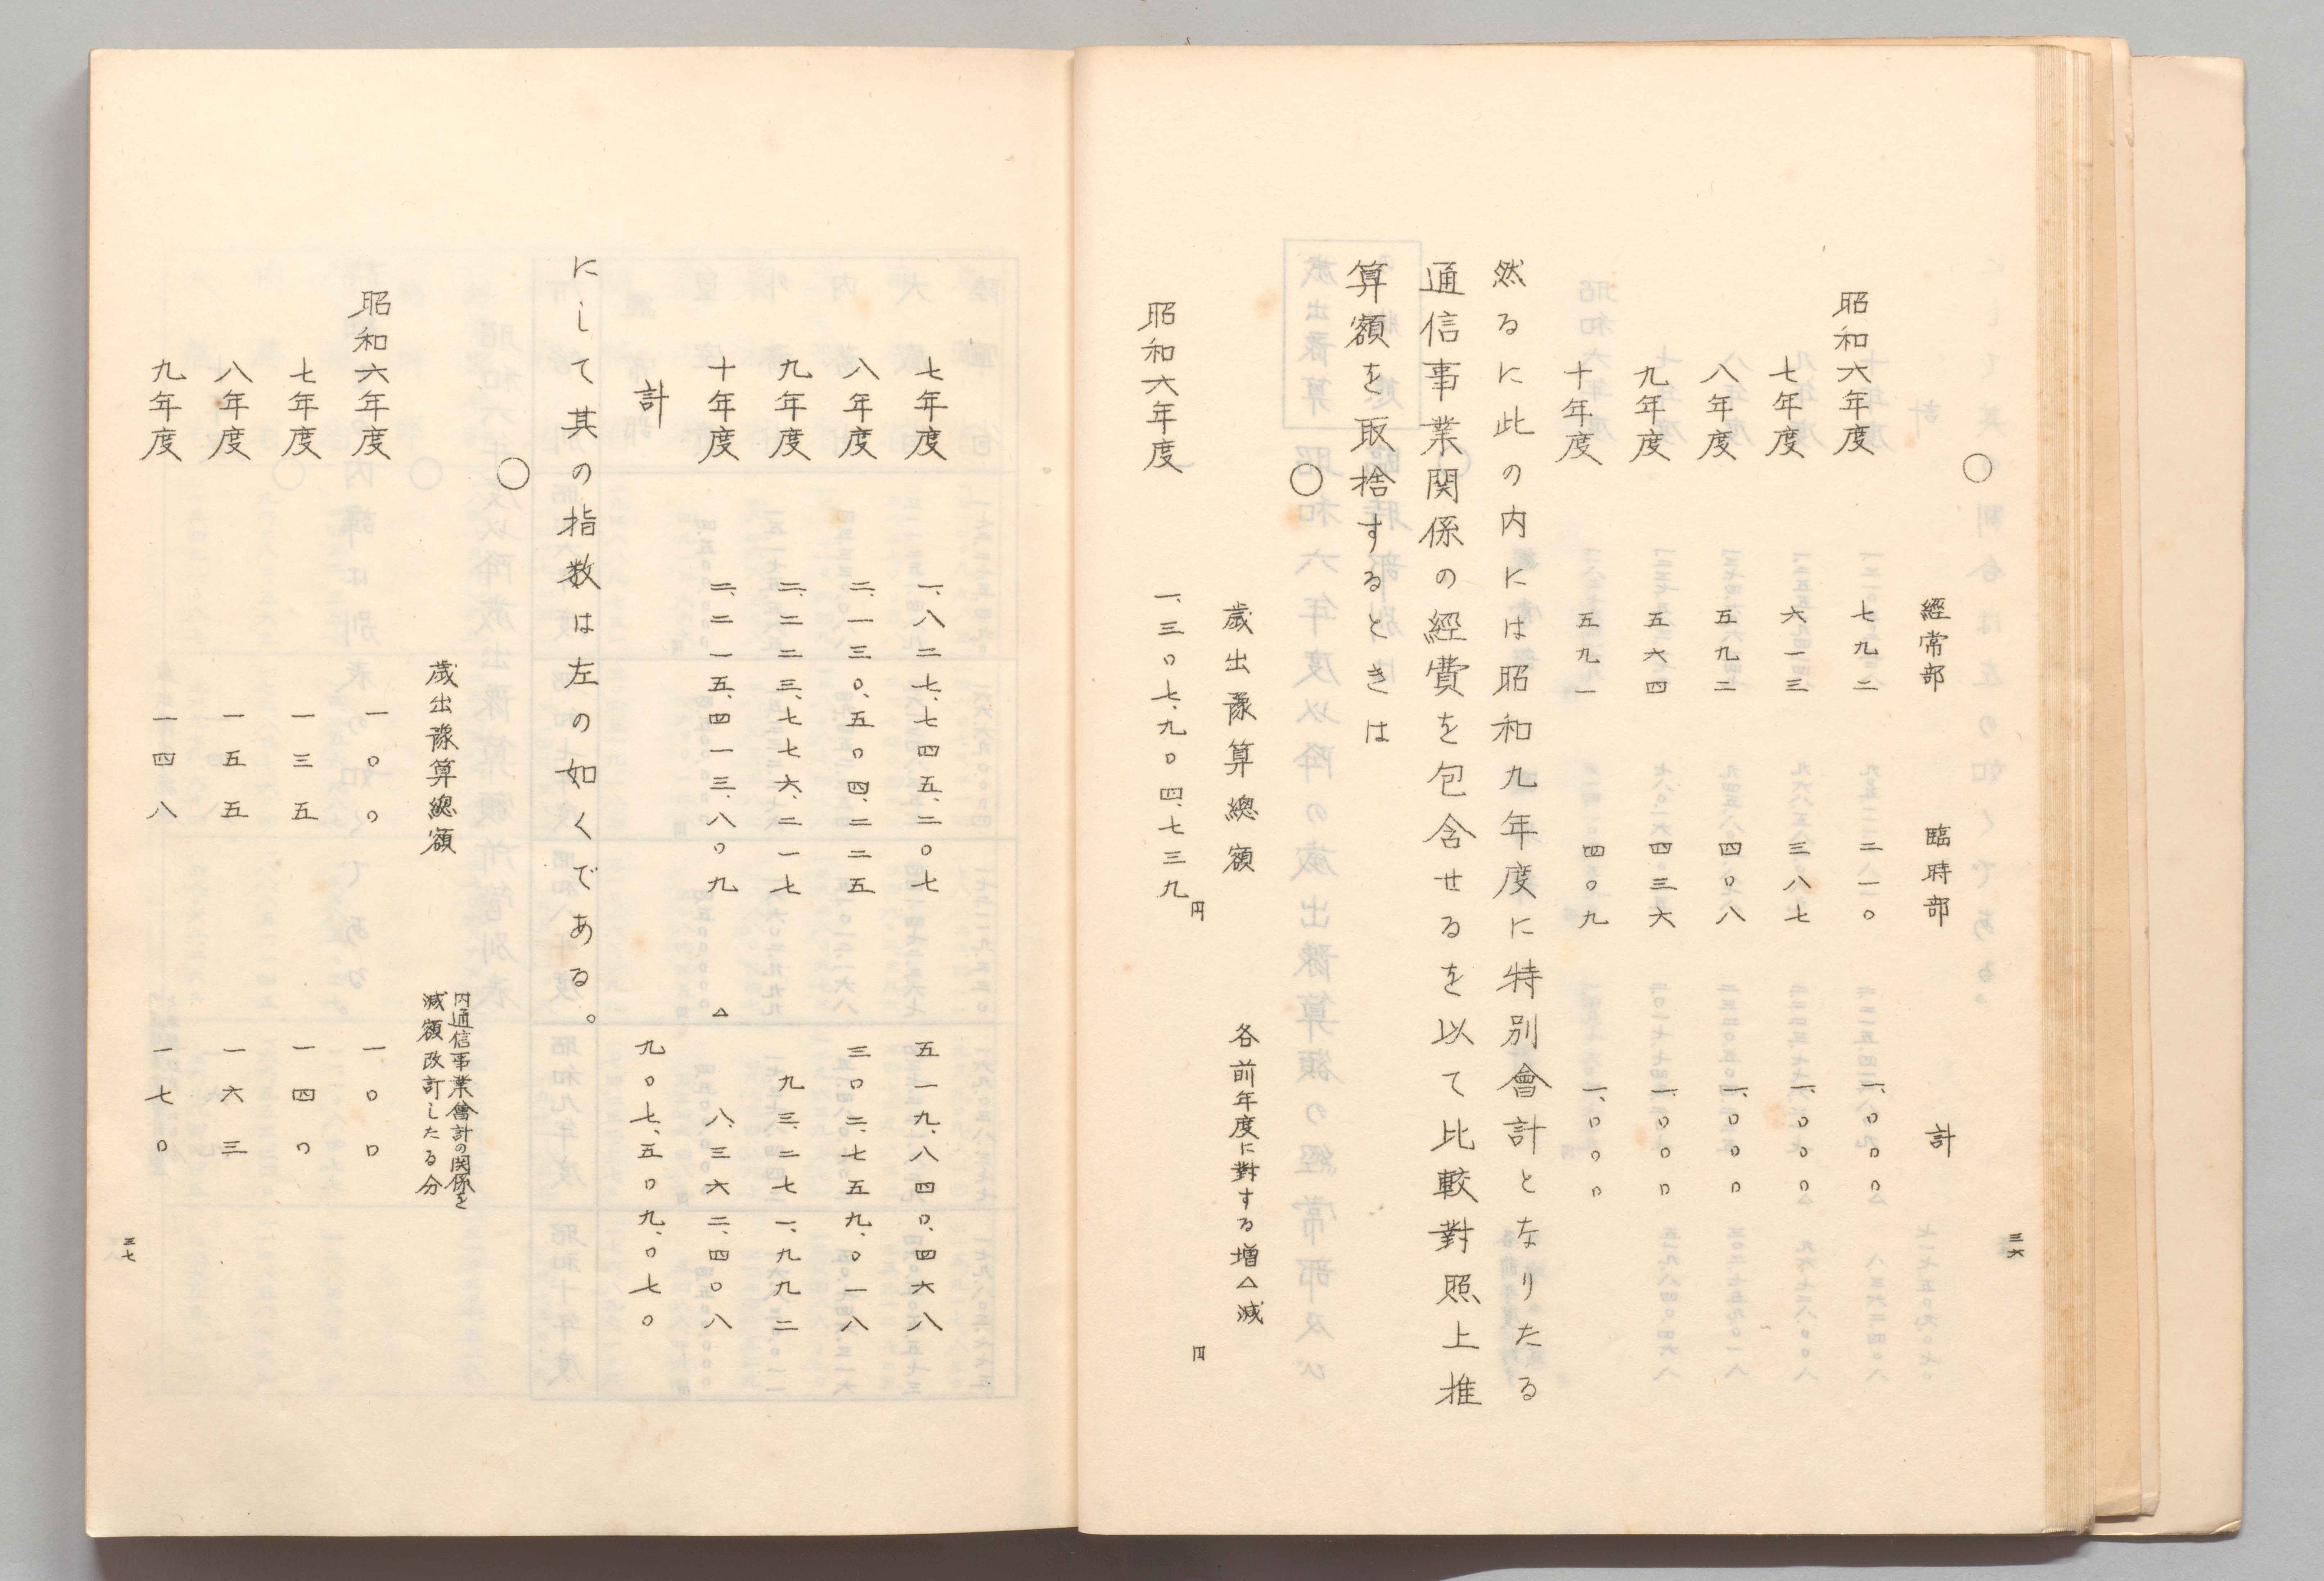 ○
經常部 臨時部 計
昭和六年度 七九二 二一〇 一、〇〇〇
七年度 六一三 三八七 一、〇〇〇
八年度 五九二 四〇八 一、〇〇〇
九年度 五六四 四三六 一、〇〇〇
十年度 五九一 四〇九 一、〇〇〇
然るに此の内には昭和九年度に特別會計となりたる
通信事業関係の經費を包含せるを以て比較對照上推
算額を取捨するときは
○
歳出豫算總額 各前年度に對する増△減
昭和六年度 一、三〇七、九〇四、七三九円 円
三六
七年度 一、八二七、七四五、二〇七 五一九、八四〇、四六八
八年度 二、一三〇、五〇四、二二五 三〇二、七五九、〇一八
九年度 二、二二三、七七六、二一七 九三、二七一、九九二
十年度 二、二一五、四一三、八〇九 △ 八、三六二、四〇八
計 九〇七、五〇九、〇七〇
にして其の指数は左の如くである。
○
歳出豫算總額 内通信事業會計の関係を
減額改訂したる分
昭和六年度 一〇〇 一〇〇
七年度 一三五 一四〇
八年度 一五五 一六三
九年度 一四八 一七〇
三七